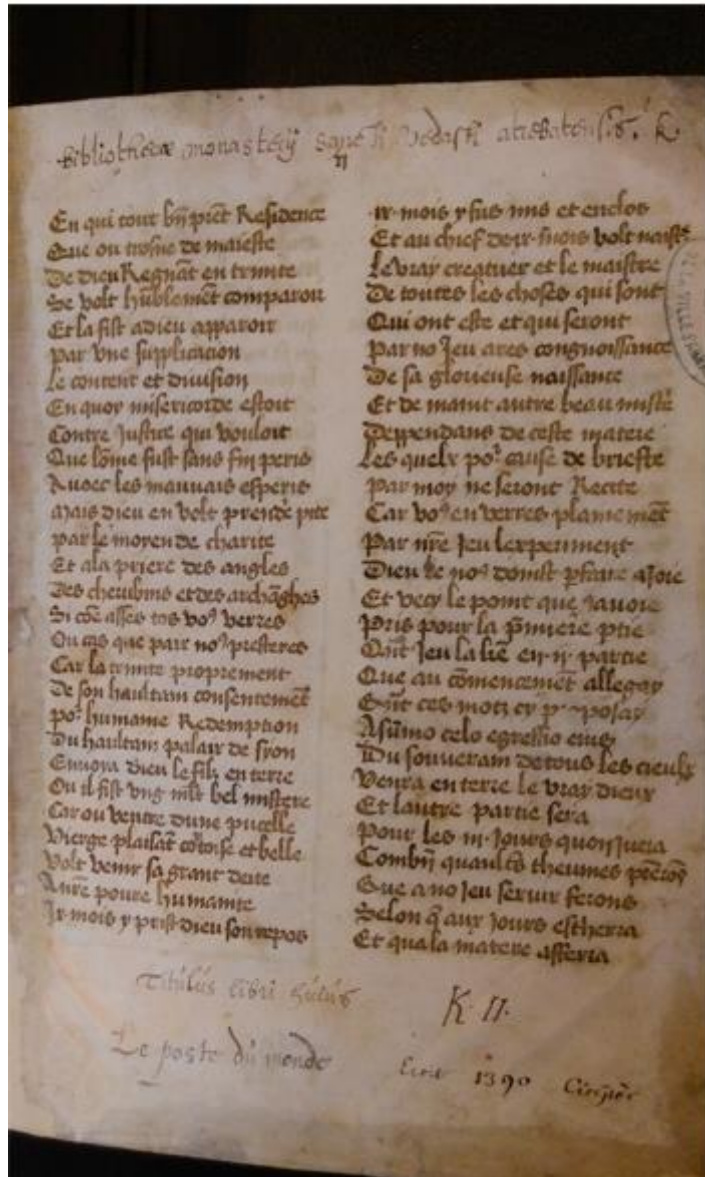 Bibliothecæ monasterij sancti Vedasti atrebatensis. K.
11
En qui tout bn̄ prēt Residence
Que ou trosne de maieste
De dieu Regnāt en trinite
Se volt hūblemēt comparoir
Et la fist a dieu apparoir
Par vne supplicacion
Le content et diuision
En quoy misericorde estoit
Contre Justice qui vouloit
Que lōme fust sans fin peris
Auuec les mauuais esperis
Mais dieu en volt prendē pite
Par le moyen de charite
Et a la priere des angles
Des cherubins et des archāgles
Si cōe asses tos vo9 verres
Ou cas que paix no9 presteres
Car la trinite proprement
De son haultain consentemēt
Po2 humaine Redemption
Du haultain palaix de syon
Enuoia dieu le filz en terre
Ou il fist vng mlt bel mistere
Car ou ventre dune pucelle
Vierge plaisāt cōtoise et belle
Volt venir sa grant deite
A nr̄e poure humanite
Ix mois y prist dieu son repos
ix mois y fus mis et enclos
Et au chief de ix mois volt naistē
Le vray creatuer et le maistre
De toutes les choses qui sont
Qui ont este et qui seront
Par no Jeu ares congnoissance
De sa glorieuse naissance
Et de maint autre beau mistē
Deppendans de ceste matere
Les quelx po2 cause de briefte
Par moy ne seront Recite
Car vo9 en verres plainemēt
Par nr̄e Jeu lexperiment
Dieu le no9 doinst pfaire a Joie
Et vecy le point que Jauoie
Pris pour la pmiere ptie
Que au cōmencemēt allegay
Qn̄t ces motz cy pposay
A sūmo celo egressio eius
Du souuerain de tous les cieulx
Venra en terre le vray dieux
Et lautre partie sera
Pour les iii Jours quon Juera
Combn̄ quaultēs theumes
Que a no Jeu seruir ferons
Selon q̄ aux Jours escherra
Et qua la matere afferra
Titulus libri huius
K. II.
Le poste du monde
1390